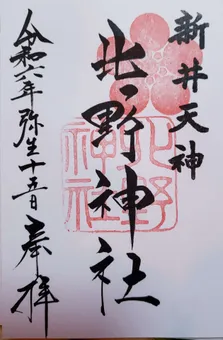 新井天神
北野神社
北野
神社
令和六年弥生十五日
奉拝